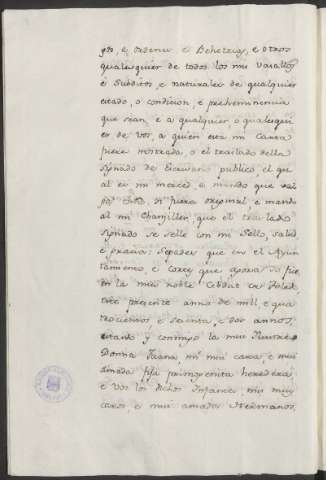 gos, e ordenes e Behetrias, e otros
qualesquier de todos los mis vasallos
e Subditos, e naturales de qualquier
estado, o condicion, e preheminencia
que sean, e a qualquier, o qualesqui
er de vos, a quien esta mi Carta
fuere mostrada, o el traslado della
signado de Escrivano publico, el qu
al es mi merced, e mando que val
ga, como si fuere original, e mando
al mi Chanziller, que el traslado
signado se selle con mi Sello, salud
e gracia: Sepades que en el Ayun
tamiento, e Cortes que agora se fiz
en la mui noble Cibdat de Toled
este presente anno de mill, e qua
trocientos e sesenta, e dos annos,
estando y conmigo la mui Illustre
Donna Juana, mi mui cara, e mui
amada fija primogenita heredera,
e vos los dichos Infantes mis mui
caros, e mui amados Hermanos,